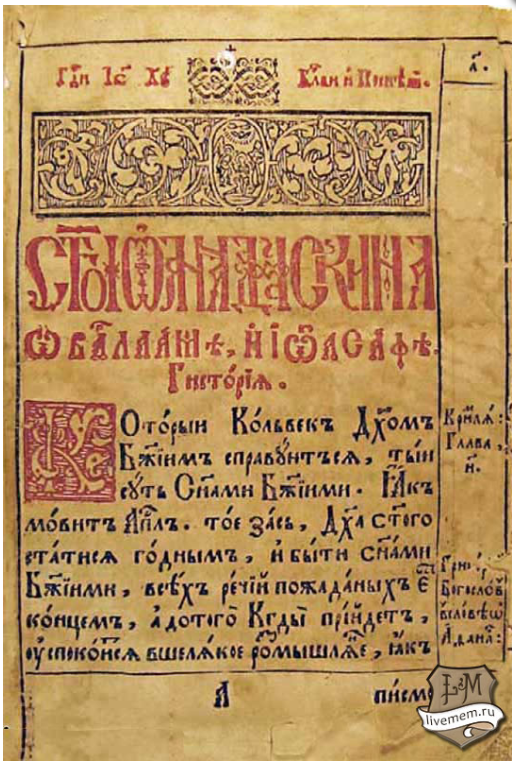 Гди Іс Ху Блви и Поспѣш.
а҃.
СТГО ІѠАНА ДАМАСКИНА
Ѡ ВАРЛААМѢ, И ІѠАСАФѢ.
Гисторїѧ.
Которыи Кольвек Дхомъ
Бжїимъ справуютъсѧ, тыи
суть Снами Бжїими. Ꙗк
мовитъ Апл҃ъ. тое засъ, Дха стго
статисѧ годнымъ, и быти снами
Бжїими, всѣхъ речїй пожаданыхъ ест
концемъ, а дотого Кгды прїйдетъ,
оуспокоитсѧ вшелѧкое розмышлѧнє, ꙗкъ
Глава,
и҃.
Богослов
А
писмо
LM
livemem.ru